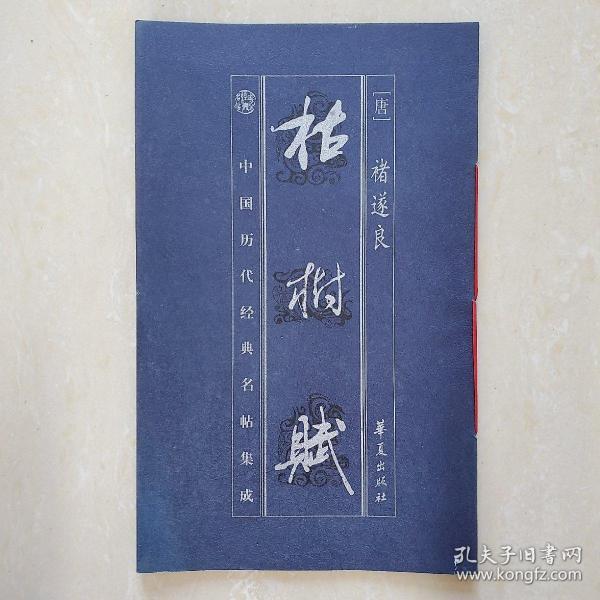 [唐]
褚遂良
華夏出版社
枯树賦
中国历代经典名帖集成
孔夫子旧書网
www.kongfz.com